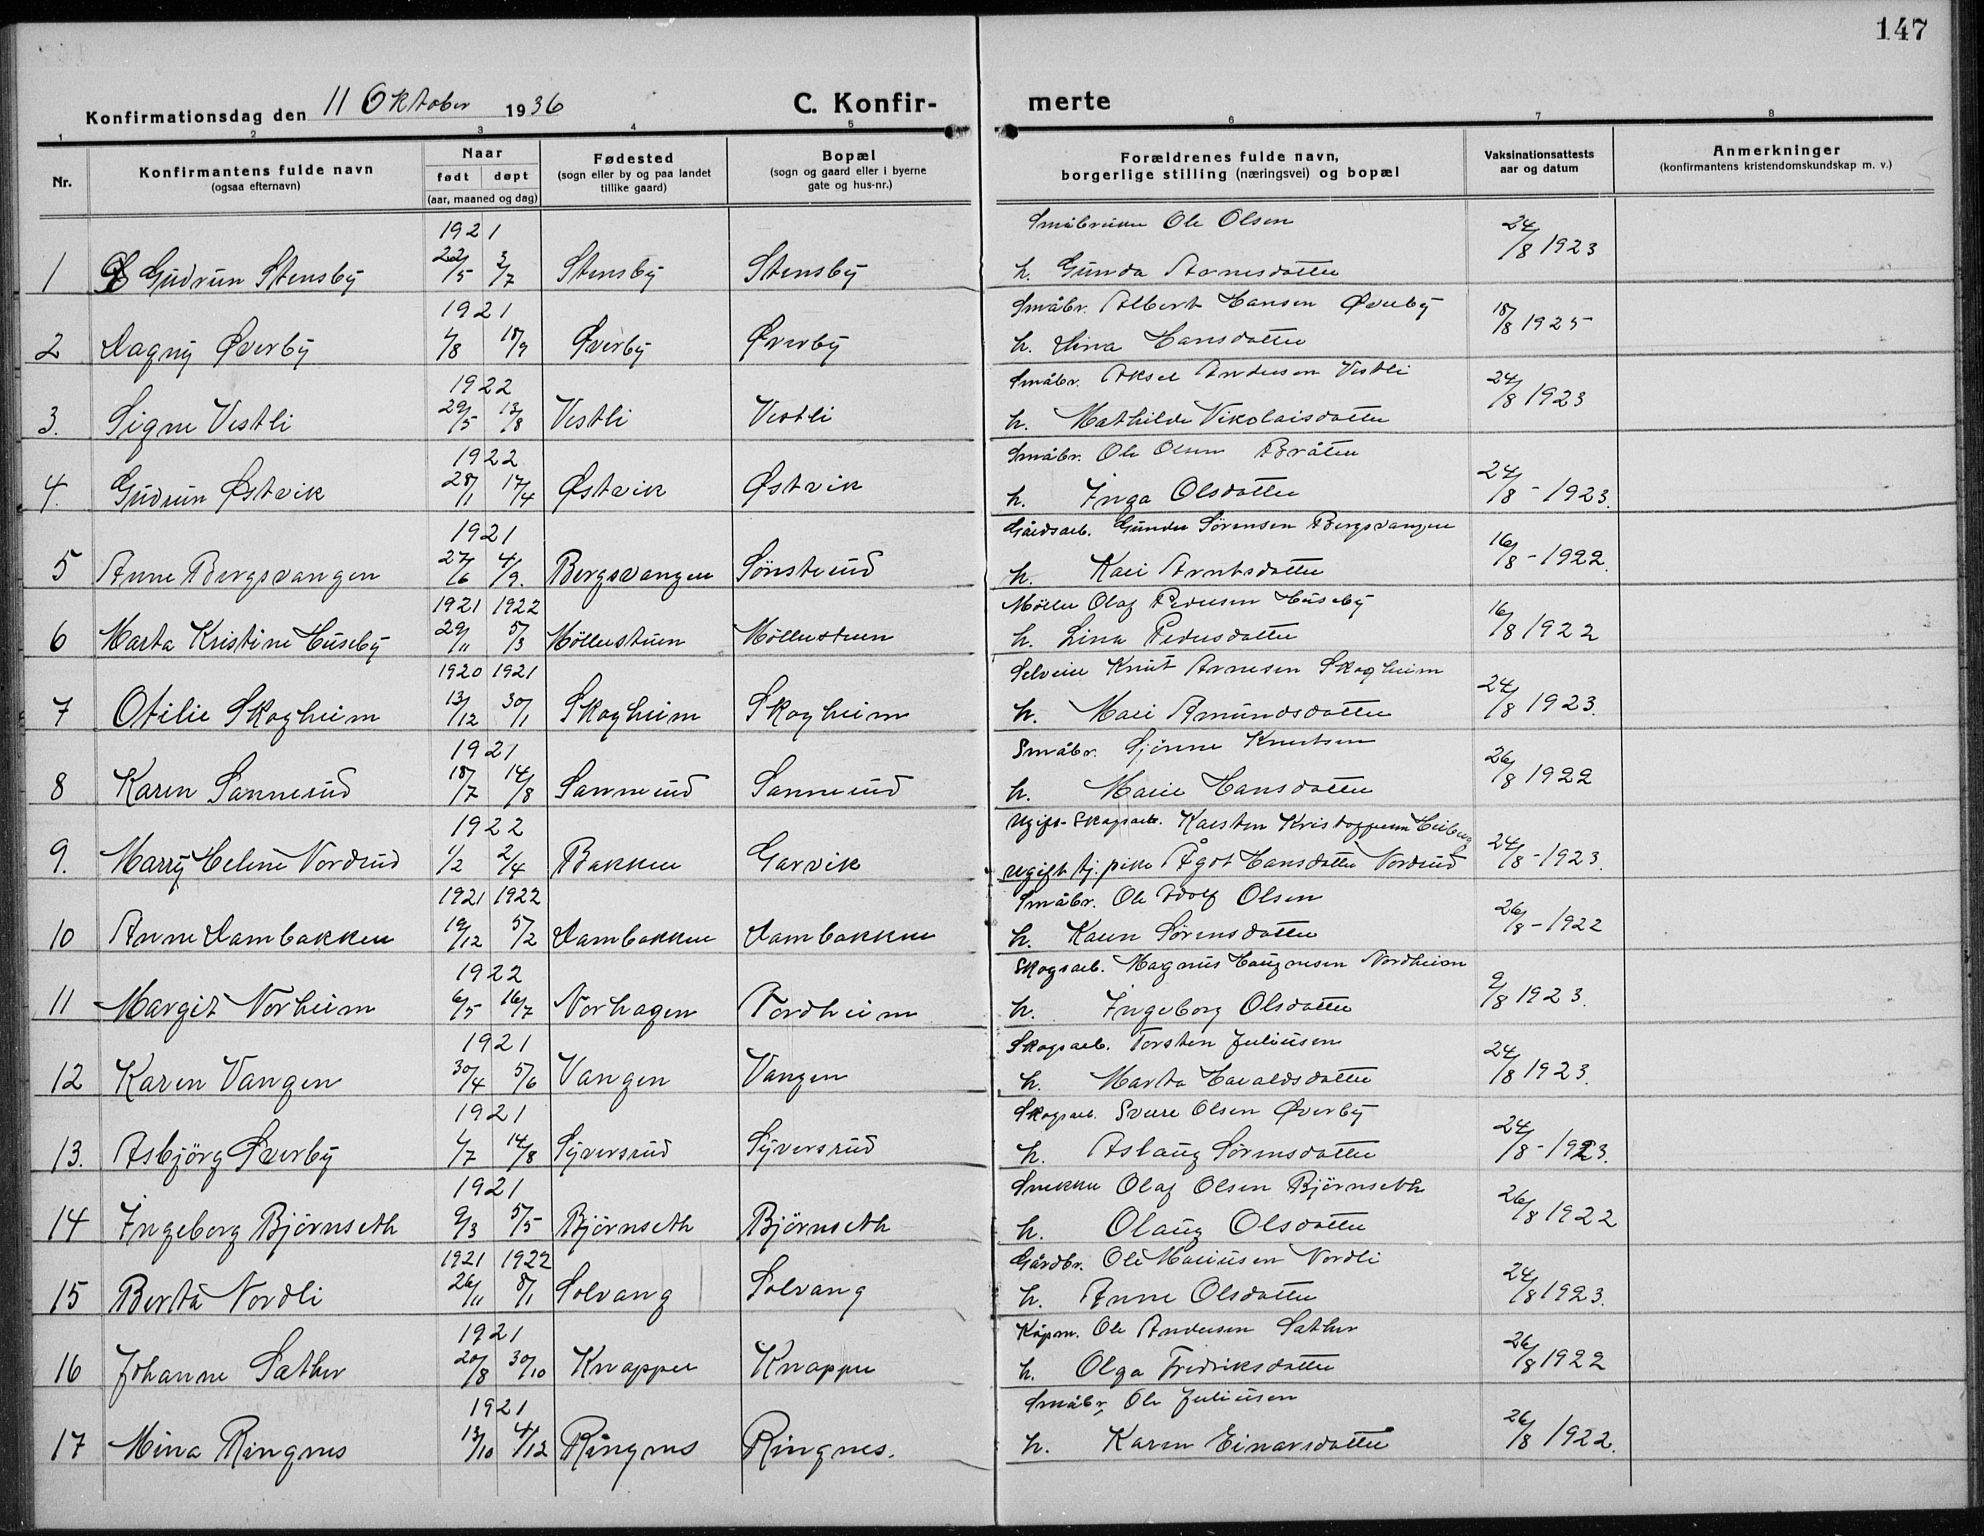 147
Konfirmationsdag den 11 Oktober 1936 C. Konfir- merte
1 2 3 4 5 6 7 8
Nr. Konfirmantens fulde navn (ogsaa efternavn) Naar født døpt (aar, maaned og dag) Fødested (sogn eller by og paa landet tillike gaard) Bopæl (sogn og gaard eller i byerne gate og hus-nr.) Forældrenes fulde navn, borgerlige stilling (næringsvei) og bopæl Vaksinationsattests aar og datum Anmerkninger (konfirmantens kristendomskundskap m. v.)
1921 Småbruker Ole Olsen
1 Gudrun Stensby 22/5 3/7 Stensby Stensby h. Gunda Arnesdatter 24/8 1923
1921 Småbr. Albert Hansen Øverby
2 Dagny Øverby 4/8 18/9 Øverby Øverby h. Hansdatter 18/8 1925
1922 Småbr. Aksel Andersen Vestli
3. Signe Vestli 29/5 13/8 Vestli Vestli h. Mathilde Nikolaisdatter 24/8 1923
1922 Småbr. Ole Olsen Bråten
4. Gudrun Østvik 28/1 17/4 Østvik Østvik h. Inga Olsdatter 24/8 - 1923.
1921 Gårdsarb. Gunder Sørensen Bergsvangen
5 Anne Bergsvangen 27/6 4/9. Bergsvangen Sønsterud h. Kari Arntsdatter 16/8 - 1922.
1921 1922 Møller Olaf Pedersen Huseby
6 Marta Kristine Huseby 29/11 5/3 Möllerstuen Möllerstuen h. Lina Pedersdatter 16/8 1922
1920 1921 Selveier Knut Arnesen Skogheim
7 Otilie Skogheim 13/12 30/1 Skogheim Skogheim h. Mari Amundsdatter 24/8 1923.
1921 Småbr. Sjønne Knutsen
8 Karen Sannerud 18/7 14/8 Sannerud Sannerud h. Marie Hansdatter 26/8 1922
1922 Ugift Skogsarb. Karsten Kristoffersen
9. Marry Helene Nordrud 1/2 2/4 Bakken Garvik ugift tj. pike Ågot Hansdatter Nordrud 24/8 - 1923.
1921 1922 Småbr. Ole Adolf Olsen
10 Anne Dambakken 19/12 5/2 Dambakken Dambakken h. Karen Sørensdatter 26/8 - 1922
1922 Skogsarb. Magnus Magnusen Nordheim
11 Margit Norheim 6/5 16/7 Norhagen Nordheim h. Ingeborg Olsdatter 9/8 1923.
1921 Skogsarb. Torsten Juliusen
12 Karen Vangen 30/4 5/6 Vangen Vangen h. Marta Haraldsdatter 24/8 1923.
1921 Skogsarb. Sverre Olsen Øverby
13. Asbjörg Øverby 4/7 14/8 Syversrud Syversrud h. Aslaug Sørensdatter 24/8 - 1923.
1921 Snekker Olaf Olsen Bjørnseth
14 Ingeborg Bjørnseth 9/3 5/5 Bjørnseth Bjørnseth h. Olaug Olsdatter 26/8 1922
1921 1922 Gårdbr. Ole Mariusen Nordli
15 Berta Nordli 26/11 8/1 Solvang Solvang h. Anne Olsdatter 24/8 1923.
1921 Kjøpm. Ole Andersen Sæther
16 Johanne Sæther 20/8 30/10 Knapper Knapper h. Olga Fredriksdatter 26/8 1922
1921 Småbr. Ole Juliusen
17 Mina Ringnes 13/10 4/12 Ringnes Ringnes. h. Karen Einarsdatter 26/8 1922.